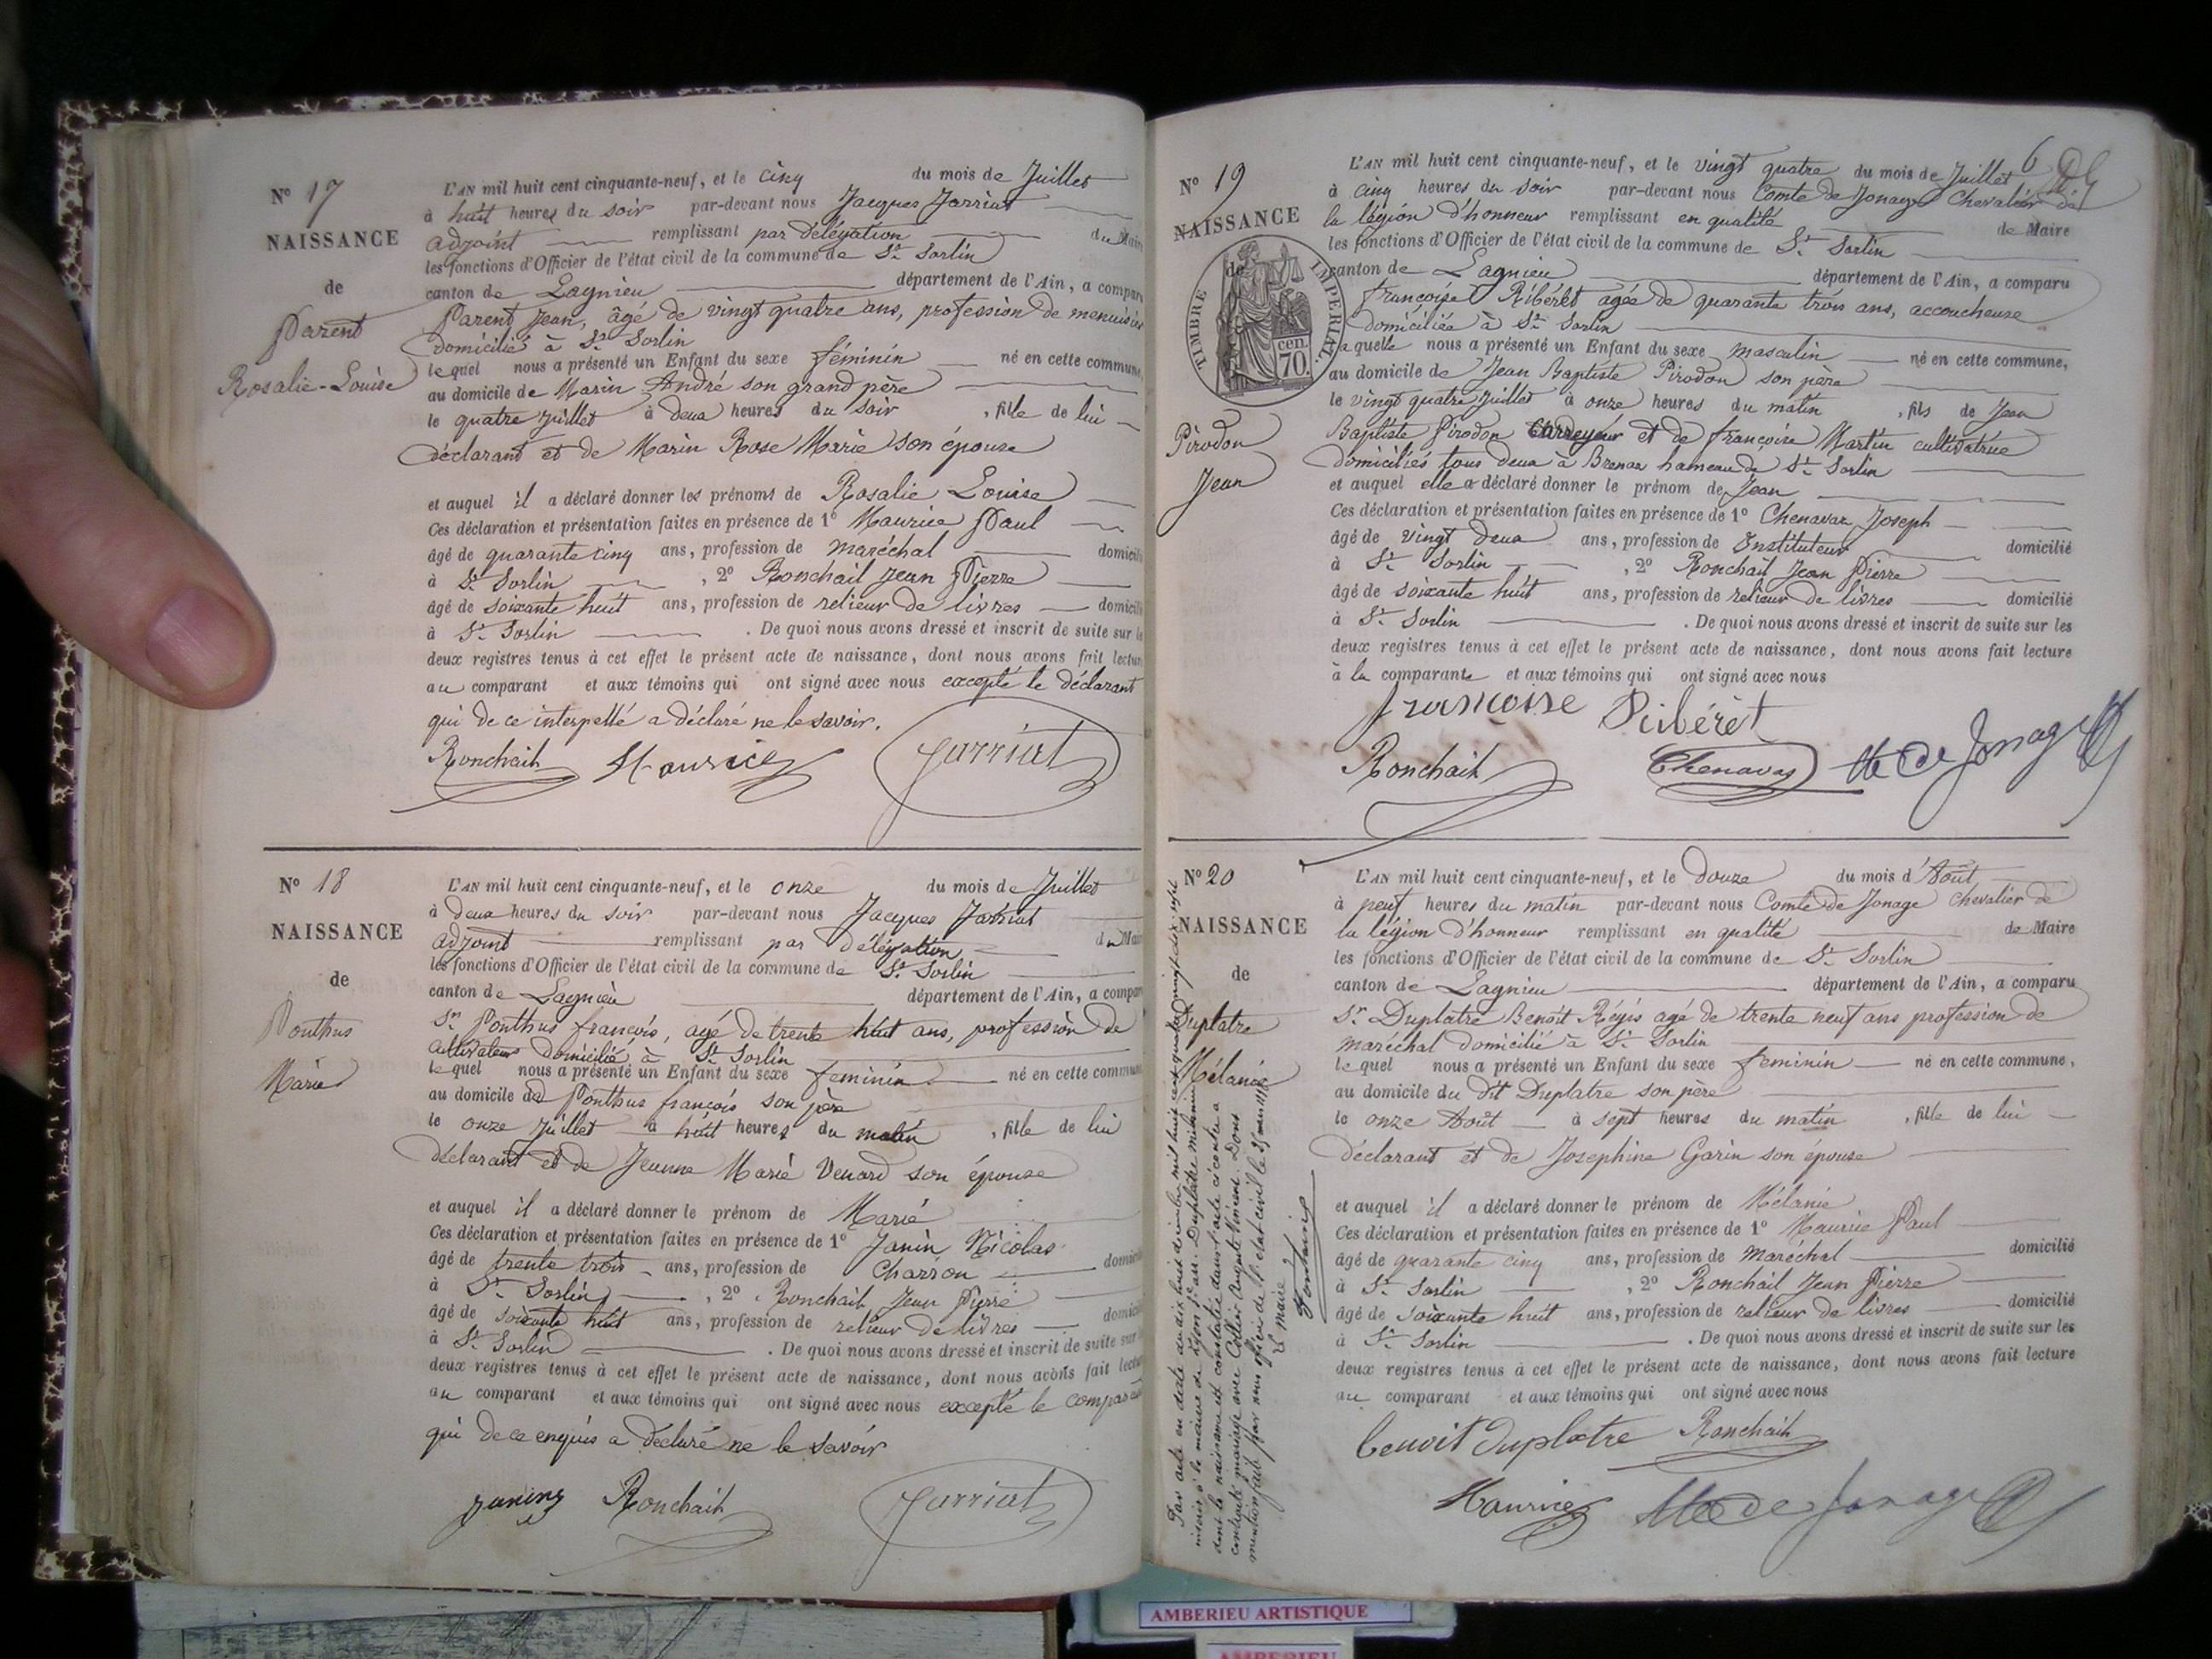 N° 17
NAISSANCE
de
Parent
Rosalie-Louise
L'AN mil huit cent cinquante-neuf, et le cinq du mois de Juillet
à huit heures du soir par-devant nous Jacques Jarriat
adjoint remplissant par délégation du Maire
les fonctions d'Officier de l'état civil de la commune de St Sorlin
canton de Lagnieu département de l'Ain, a comparu
Parent Jean, âgé de vingt quatre ans, profession de menuisier
domicilié à St Sorlin
lequel nous a présenté un Enfant du sexe féminin né en cette commune,
au domicile de Marin André son grand père
le quatre juillet à deux heures du soir, fille de lui
déclarant et de Marin Rose Marie son épouse
et auquel il a déclaré donner les prénoms de Rosalie Louise
Ces déclaration et présentation faites en présence de 1° Maurice Paul
âgé de quarante cinq ans, profession de maréchal domicilié
à St Sorlin, 2° Ronchail Jean Pierre
âgé de soixante huit ans, profession de relieur de livres domicilié
à St Sorlin. De quoi nous avons dressé et inscrit de suite sur les
deux registres tenus à cet effet le présent acte de naissance, dont nous avons fait lecture
au comparant et aux témoins qui ont signé avec nous excepté le déclarant
qui de ce interpellé a déclaré ne le savoir.
Ronchail Maurice Jarriat
N° 18
NAISSANCE
de
Ponthus
Marie
L'AN mil huit cent cinquante-neuf, et le onze du mois de Juillet
à deux heures du soir par-devant nous Jacques Jarriat
adjoint remplissant par délégation du Maire
les fonctions d'Officier de l'état civil de la commune de St Sorlin
canton de Lagnieu département de l'Ain, a comparu
Sr Ponthus françois, agé de trente huit ans, profession de
cultivateur domicilié à St Sorlin
lequel nous a présenté un Enfant du sexe feminin né en cette commune
au domicile de Ponthus françois son père
le onze juillet à huit heures du matin, fille de lui
déclarant et de Jeanne Marie Venard son épouse
et auquel il a déclaré donner le prénom de Marie
Ces déclaration et présentation faites en présence de 1° Janin Nicolas
âgé de trente trois ans, profession de Charron domicilié
à St Sorlin, 2° Ronchail Jean Pierre
âgé de soixante huit ans, profession de relieur de livres domicilié
à St Sorlin. De quoi nous avons dressé et inscrit de suite sur les
deux registres tenus à cet effet le présent acte de naissance, dont nous avons fait lecture
au comparant et aux témoins qui ont signé avec nous excepté le comparant
qui de ce enquis a déclaré ne le savoir
Janin Ronchail Jarriat
6
N° 19
NAISSANCE
de
TIMBRE IMPERIAL
cen. 70.
Pirodon
Jean
L'AN mil huit cent cinquante-neuf, et le vingt quatre du mois de Juillet
à cinq heures du soir par-devant nous Comte de Jonage Chevalier de
la légion d'honneur remplissant en qualité de Maire
les fonctions d'Officier de l'état civil de la commune de St Sorlin
canton de Lagnieu département de l'Ain, a comparu
françoise Ribérêt agée de quarante trois ans, accoucheuse
domiciliée à St Sorlin
laquelle nous a présenté un Enfant du sexe masculin né en cette commune,
au domicile de Jean Baptiste Pirodon son père
le vingt quatre juillet à onze heures du matin, fils de Jean
Baptiste Pirodon et de françoise Martin cultivatrice
domiciliés tous deux à Brenaz hameau de St Sorlin
et auquel elle a déclaré donner le prénom de Jean
Ces déclaration et présentation faites en présence de 1° Chenavaz Joseph
âgé de vingt deux ans, profession de Instituteur domicilié
à St Sorlin, 2° Ronchail Jean Pierre
âgé de soixante huit ans, profession de relieur de livres domicilié
à St Sorlin. De quoi nous avons dressé et inscrit de suite sur les
deux registres tenus à cet effet le présent acte de naissance, dont nous avons fait lecture
à la comparante et aux témoins qui ont signé avec nous
françoise Ribérêt
Ronchail Chenavas de Jonage
N° 20
NAISSANCE
de
Duplatre
Mélanie
Par acte en date du dix huit décembre mil huit cent quatre vingt dix sept
inscrit à la mairie de Lyon Duplatre Mélanie
dont la naissance est constatée dans l'acte ci contre a
contracté mariage avec Collier Auguste Vincent. Dont
mention faite par nous officier de l'état civil le
Le maire
L'AN mil huit cent cinquante-neuf, et le douze du mois d'Août
à neuf heures du matin par-devant nous Comte de Jonage Chevalier de
la légion d'honneur remplissant en qualité de Maire
les fonctions d'Officier de l'état civil de la commune de St Sorlin
canton de Lagnieu département de l'Ain, a comparu
Sr Duplatre Benoit Régis agé de trente neuf ans profession de
maréchal domicilié à St Sorlin
lequel nous a présenté un Enfant du sexe feminin né en cette commune,
au domicile du dit Duplatre son père
le onze Août à sept heures du matin, fille de lui
déclarant et de Josephine Garin son épouse
et auquel il a déclaré donner le prénom de Mélanie
Ces déclaration et présentation faites en présence de 1° Maurice Paul
âgé de quarante cinq ans, profession de maréchal domicilié
à St Sorlin, 2° Ronchail Jean Pierre
âgé de soixante huit ans, profession de relieur de livres domicilié
à St Sorlin. De quoi nous avons dressé et inscrit de suite sur les
deux registres tenus à cet effet le présent acte de naissance, dont nous avons fait lecture
au comparant et aux témoins qui ont signé avec nous
benoit duplatre Ronchail
Maurice de Jonage
AMBERIEU ARTISTIQUE
AMBERIEU